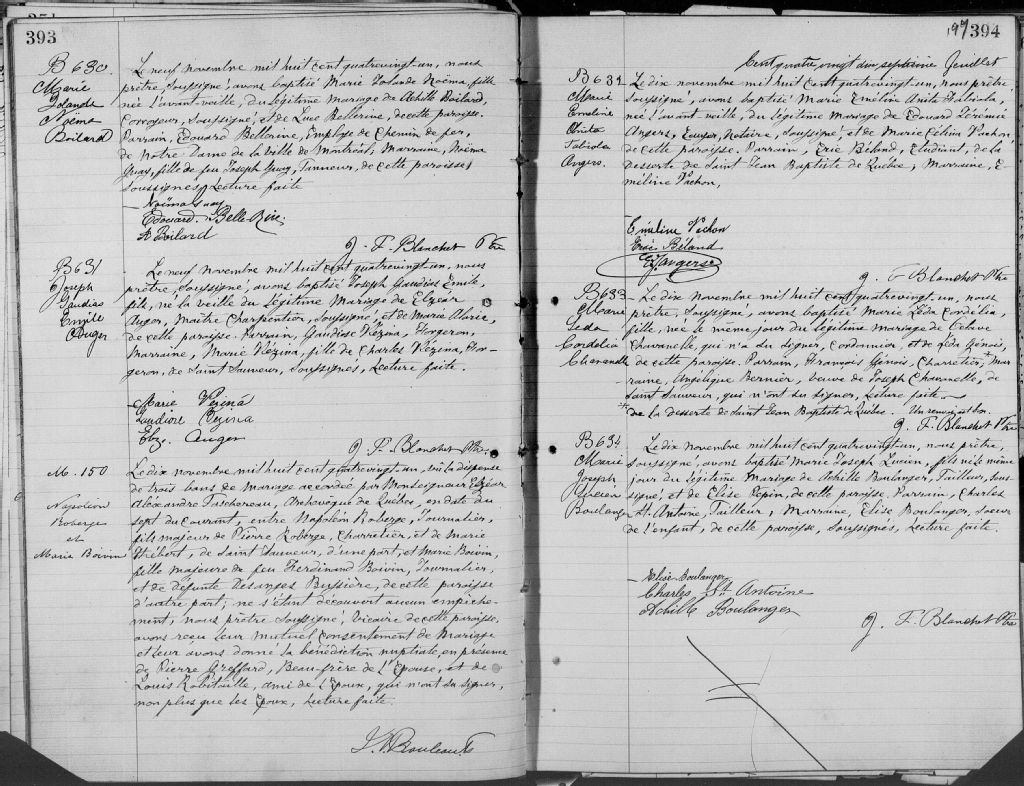 393
B 630.
Marie
Yolande
Noëma
Boilard
Le neuf novembre mil huit cent quatrevingt-un, nous
prêtre, soussigné, avons baptisé Marie Yolande Noëma, fille
née l'avant-veille, du légitime mariage de Achille Boilard,
Corroyeur, soussigné, et de Luce Bellerive, de cette paroisse.
Parrain, Edouard Bellerive, Employé de Chemin de fer,
de Notre Dame de la ville de Montréal, Marraine, Noëma
Guay, fille de feu Joseph Guay, Tanneur, de cette paroisse,
soussignés, Lecture faite
Noëma Guay
Edouard Belle-Rive.
A Boilard
J. F. Blanchet Ptre
B 631
Joseph
Gaudias
Emile
Auger
Le neuf novembre mil huit cent quatrevingt-un, nous
prêtre, soussigné, avons baptisé Joseph Gaudias Emile,
fils, né la veille du légitime mariage de Elzéar
Auger, Maître Charpentier, soussigné, et de Marie
de cette paroisse. Parrain, Gaudiose Vézina, Forgeron,
Marraine, Marie Vézina, fille de Charles Vézina, For-
geron, de Saint Sauveur, soussignés, Lecture faite.
Marie Vezina
Gaudiose Vezina
Elz. Auger
J. F. Blanchet Ptre.
M. 150
Napoléon
Roberge
et
Marie Boivin
Le dix novembre mil huit cent quatrevingt-un, vu la dispense
de trois bans de mariage accordée par Monseigneur Elzéar
Alexandre Taschereau, Archevêque de Québec, en date du
sept du courant, entre Napoléon Roberge, Journalier,
fils majeur de Pierre Roberge, Charretier, et de Marie
Hébert, de Saint Sauveur, d'une part, et Marie Boivin,
fille majeure de feu Ferdinand Boivin, Journalier,
et de défunte Desanges Bussière, de cette paroisse
d'autre part; ne s'étant découvert aucun empêche-
ment, nous prêtre soussigné, Vicaire de cette paroisse,
avons reçu leur mutuel consentement de Mariage
et leur avons donné la bénédiction nuptiale, en présence
de Pierre Greffard, Beau-frère de l'Epouse, et de
Louis Robitaille, ami de l'Epoux, qui n'ont su signer,
non plus que les Epoux, Lecture faite.
Rouleau
197 394
Cent quatre vingt dix septième Feuillet
B 632
Marie
Emeline
Anita
Fabiola
Angers.
Le dix novembre mil huit cent quatrevingt-un, nous prêtre,
soussigné, avons baptisé Marie Eméline Anita Fabiola,
née l'avant veille, du légitime mariage de Edouard Jérémie
Angers, Ecuyer, Notaire, soussigné, et de Marie Célina Vachon,
de cette paroisse. Parrain, Eric Béland, Etudiant, de la
desserte de Saint Jean Baptiste de Québec, Marraine, E-
méline Vachon,
Eméline Vachon
Eric Béland
EJ Angers
J. F Blanchet Ptre
B 633
Marie
Leda
Cordelia
Charenelle
Le dix novembre mil huit cent quatrevingt-un, nous
prêtre, soussigné, avons baptisé Marie Léda Cordélia,
fille, née le même jour du légitime mariage de Octave
qui n'a su signer, Cordonnier, et de Léda Génois,
de cette paroisse. Parrain, François Génois, Charretier, Mar-
raine, Angélique Bernier, veuve de Joseph de
Saint Sauveur, qui n'ont su signer, Lecture faite.
de la desserte de Saint Jean Baptiste de Québec. Un renvoi est bon.
J. F. Blanchet Ptre
B 634
Marie
Joseph
Lucien
Boulanger
Le dix novembre mil huit cent quatrevingt-un, nous prêtre,
soussigné, avons baptisé Marie Joseph Lucien, fils né le même
jour du légitime mariage de Achille Boulanger, Tailleur, sous-
signé, et de Elise Pépin, de cette paroisse. Parrain, Charles
St. Antoine, Tailleur; Marraine, Elise Boulanger, Soeur
de l'enfant, de cette paroisse, soussignés, Lecture faite.
Elise Boulanger
Charles St Antoine
Achille Boulanger
J. F. Blanchet Ptre